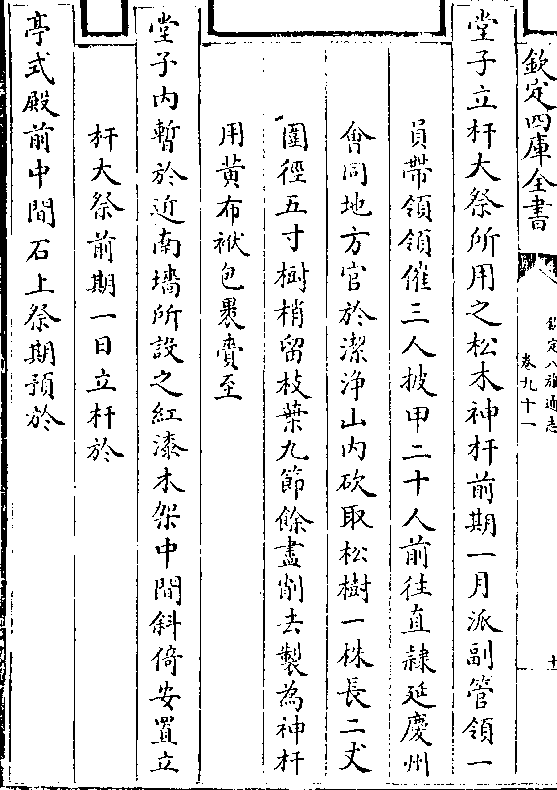 欽定四庫全書
欽定八旗通志
卷九十一
十
堂子立杆大祭所用之松木神杆前期一月派副管領一
員帶領領催三人披甲二十人前往直隸延慶州
會同地方官於潔淨山內砍取松樹一株長二丈
圍徑五寸樹梢留枝葉九節餘盡削去製為神杆
用黃布袱包裹賫至
堂子內暫於近南墻所設之紅漆木架中間斜倚安置立
杆大祭前期一日立杆於
亭式殿前中間石上祭期預於